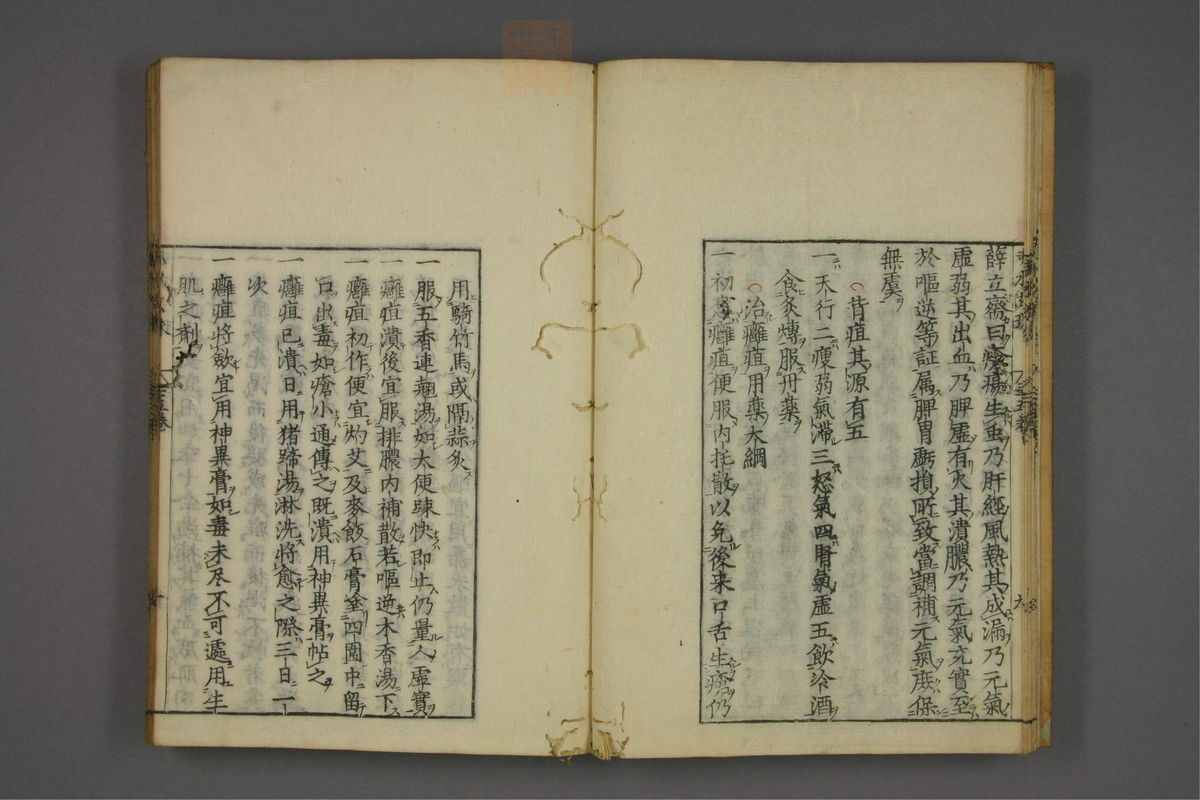 薛立斎曰瘡瘍生虫乃肝經風熱其成漏乃元氣
虛弱其出血乃脾虛有火其潰膿乃元氣充實至
於嘔逆等証属脾胃虧損所致當調補元氣庶保
無虞
背疽其源有五
一天行二瘦弱氣滯三怒氣四腎氣虛五飲冷酒
食炙煿服丹藥
治癰疽用藥大綱
一初意癰疽便服内托散以免後来口舌生瘡仍
用騎竹馬或隔蒜灸
一服五香連翹湯如大便踈快即止仍量人虛實
一癰疽潰後宜服排膿内補散若嘔逆木香湯下
一癰疽初作便宜灼艾及麥飯石膏塗四圍中留
口出毒如瘡小通傳之既潰用神異膏帖之
一癰疽已潰日用猪蹄湯淋洗將愈之際三日一
次
一癰疽将歛宜用神異膏如毒未尽不可遽用生
肌之剤